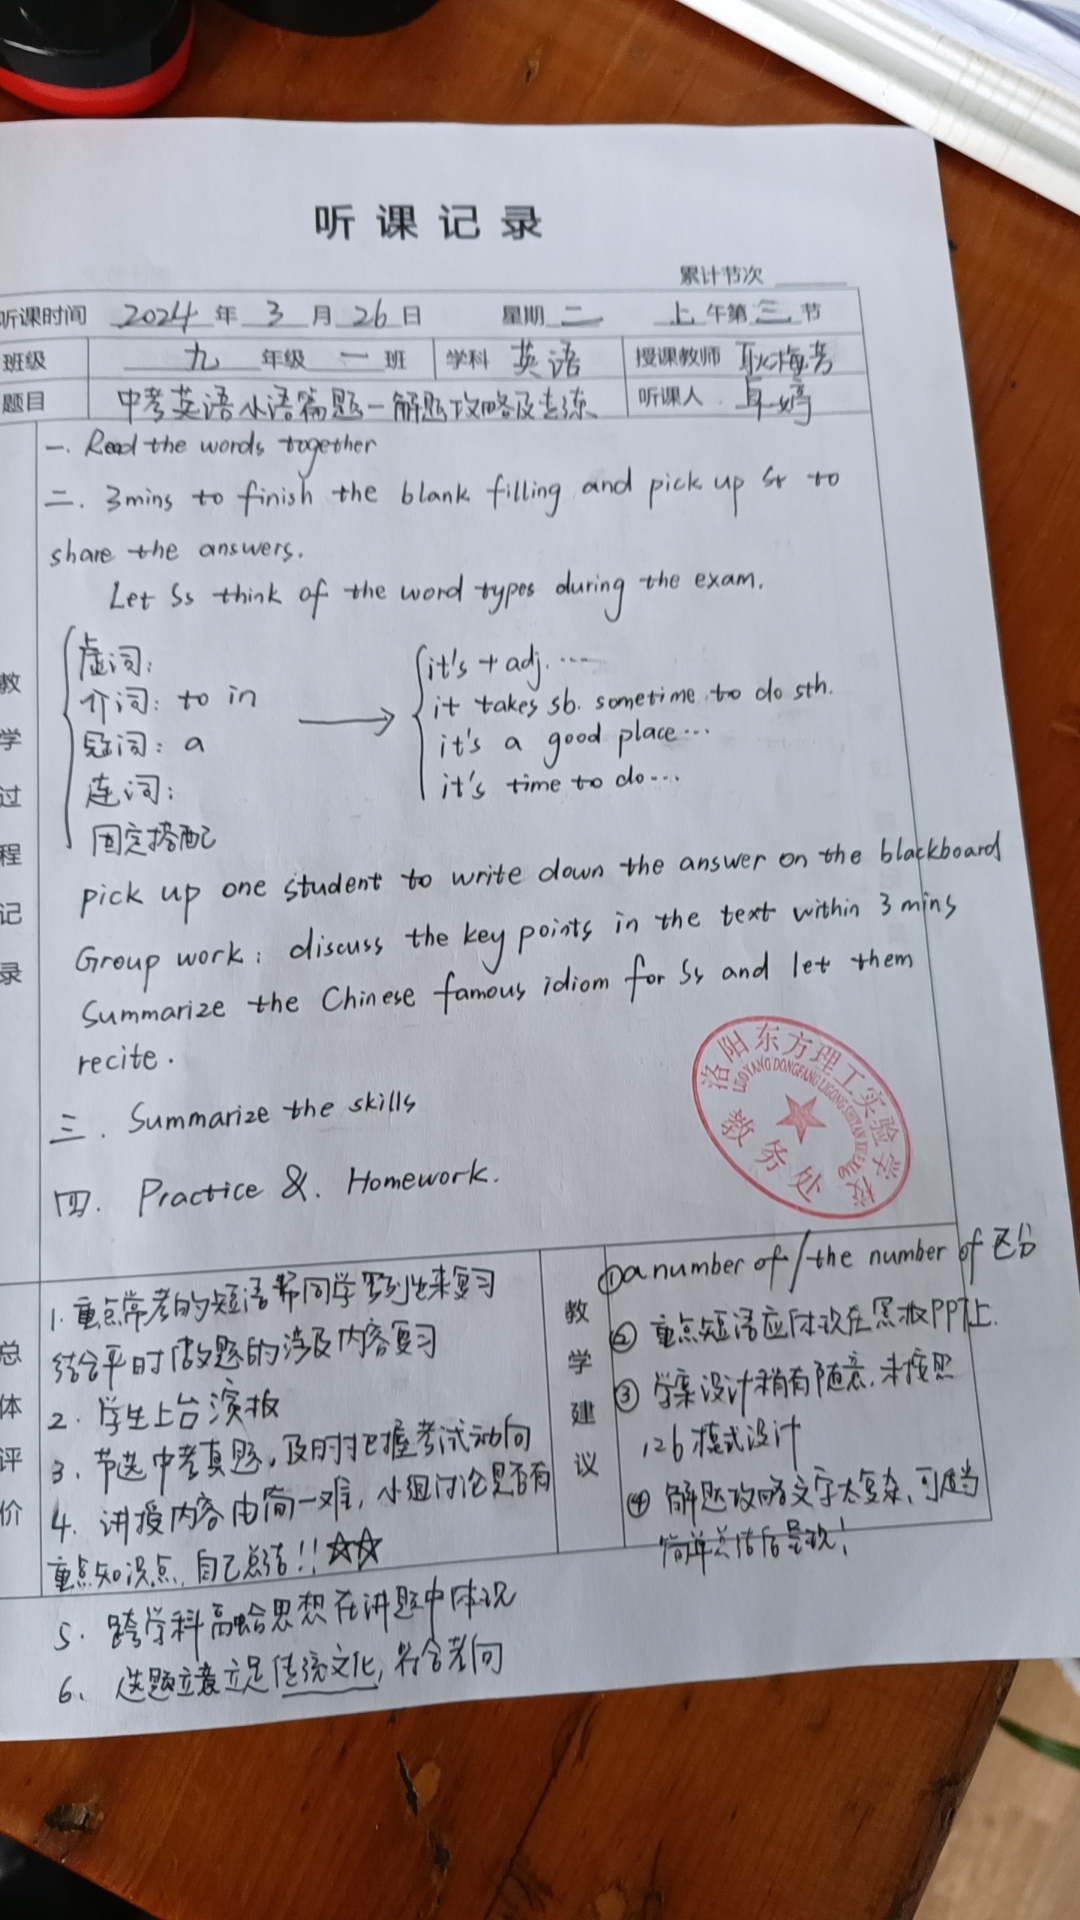 听课记录
累计节次
听课时间 2024 年 3 月 26 日 星期 二 上 午第 三 节
班级 九 年级 一 班 学科 英语 授课教师 耿梅芳
题目 中考英语小语篇题-解题攻略及专练 听课人 卓婷
教学过程记录
一. Read the words together
二. 3mins to finish the blank filling and pick up Sr to
share the answers.
Let Ss think of the word types during the exam.
虚词:
介词: to in
冠词: a
连词:
固定搭配
it's + adj. ...
it takes sb. sometime to do sth.
it's a good place...
it's time to do...
pick up one student to write down the answer on the blackboard
Group work: discuss the key points in the text within 3 mins
Summarize the Chinese famous idiom for Ss and let them
recite.
三. Summarize the skills
四. Practice &. Homework.
洛阳东方理工实验学校
LUOYANG DONGFANG LIGONG SHIYAN XUEXIAO
教务处
总体评价
1. 重点常考的短语帮同学罗列出来复习
结合平时做题的涉及内容复习
2. 学生上台演板
3. 节选中考真题,及时把握考试动向
4. 讲授内容由简一难,小组讨论是否有
重点知识点,自己总结!!☆☆
5. 跨学科融合思想在讲题中体现
6、选题立意立足传统文化,符合考向
教学建议
①a number of/the number of 区分
② 重点短语应体现在黑板PPT上.
③ 学案设计稍有随意,未按照
126模式设计
④ 解题攻略文字太复杂,可适当
简单总结后呈现!